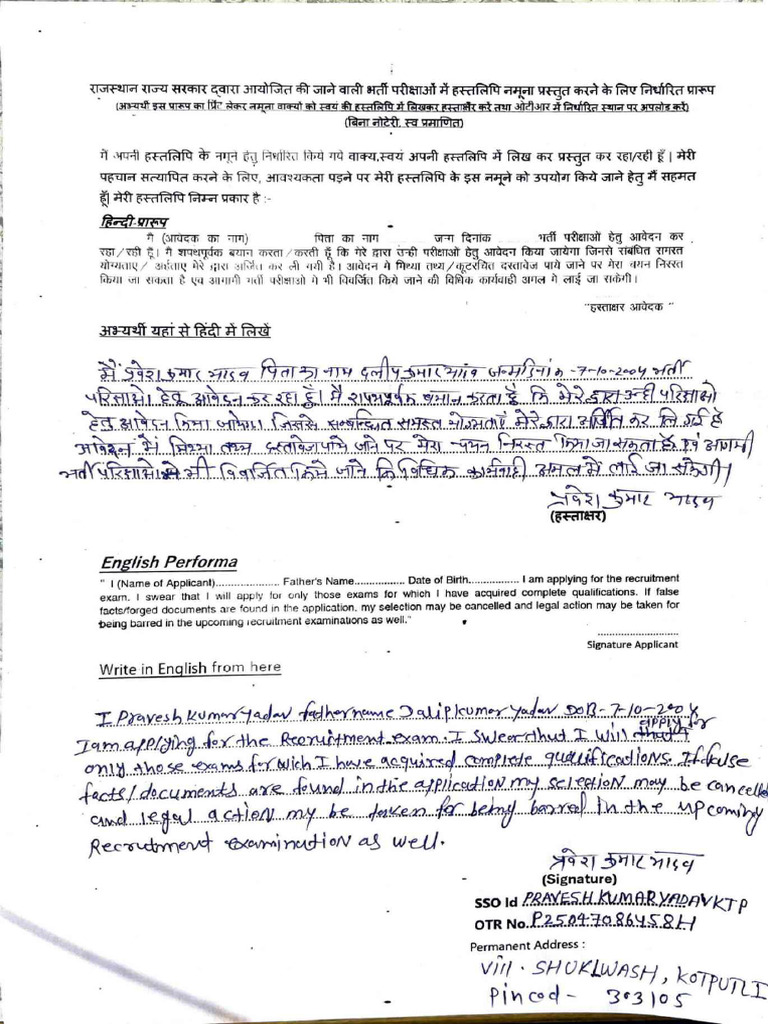 राजस्थान राज्य सरकार द्वारा आयोजित की जाने वाली भर्ती परीक्षाओं में हस्तलिपि नमूना प्रस्तुत करने के लिए निर्धारित प्रारूप
(अभ्यर्थी इस प्रारूप का प्रिंट लेकर नमूना वाक्यों को स्वयं की हस्तलिपि में लिखकर हस्ताक्षर करे तथा ओटीआर में निर्धारित स्थान पर अपलोड करें)
(बिना नोटेरी, स्व प्रमाणित)
मैं अपनी हस्तलिपि के नमूने हेतु निर्धारित किये गये वाक्य,स्वयं अपनी हस्तलिपि में लिख कर प्रस्तुत कर रहा/रही हूँ। मेरी
पहचान सत्यापित करने के लिए, आवश्यकता पड़ने पर मेरी हस्तलिपि के इस नमूने को उपयोग किये जाने हेतु मैं सहमत
हूँ। मेरी हस्तलिपि निम्न प्रकार है :-
हिन्दी-प्रारूप
मै (आवेदक का नाग) पिता का नाग जन्ग दिनांक भर्ती परीक्षाओ हेतु आवेदन कर
रहा/रही हूँ। मै शपथपूर्वक बयान करता/करती हूँ कि मेरे द्वारा उन्ही परीक्षाओ हेतु आवेदन किया जायेगा जिनसे संबंधित सगस्त
योग्यताए/ अर्हताए मेरे द्वारा अर्जित कर ली गयी है। आवेदन गे गिथ्या तथ्य/कूटरचित दस्तावेज पाये जाने पर गेरा चयन निरस्त
किया जा सकता है एव आगागी भर्ती परीक्षाओ गे भी विवर्जित किये जाने की विधिक कार्यवाही अगल गे लाई जा सकेगी।
"हस्ताक्षर आवेदक "
अभ्यर्थी यहां से हिंदी में लिखें
मैं प्रवेश कुमार यादव पिता का नाम दलीप कुमार यादव जन्मदिनांक -7-10-2004 भर्ती
परिक्षाओ हेतु आवेदन कर रहा हूँ। मै शपथपूर्वक बयान करता हूँ कि मेरे द्वारा उन्ही परिक्षाओ
हेतु आवेदन किया जायेगा जिससे सम्बन्धित समस्त योग्यताएँ मेरे द्वारा अर्जित कर लि गई है
आवेदन में मिथ्या तथ्य दस्तावेज पाये जाने पर मेरा चयन निरस्त किया जा सकता है एवं आगामी
भर्ती परिक्षाओ से भी विवर्जित किये जाने कि विधिक कार्यवाही अमल मे लाई जा सकेगी।
प्रवेश कुमार यादव
(हस्ताक्षर)
English Performa
" I (Name of Applicant)..................... Father's Name................. Date of Birth................. I am applying for the recruitment
exam. I swear that I will apply for only those exams for which I have acquired complete qualifications. If false
facts/forged documents are found in the application, my selection may be cancelled and legal action may be taken for
being barred in the upcoming recruitment examinations as well."
...........................
Signature Applicant
Write in English from here
I Pravesh Kumar Yadav father name Dalip kumar Yadav DOB - 7-10-2004
I am applying for the Recruitment exam. I swear that I will apply for
only those exams for wich I have acquired complete qualifications. If false
facts/documents are found in the application my selection may be cancelled
and legal action my be taken for being barred in the upcoming
Recruitment examination as well.
प्रवेश कुमार यादव
(Signature)
SSO Id PRAVESHKUMARYADAVKTP
OTR No. P25047086458H
Permanent Address :
Vill. SHUKLWASH, KOTPUTLI
Pincod - 303105